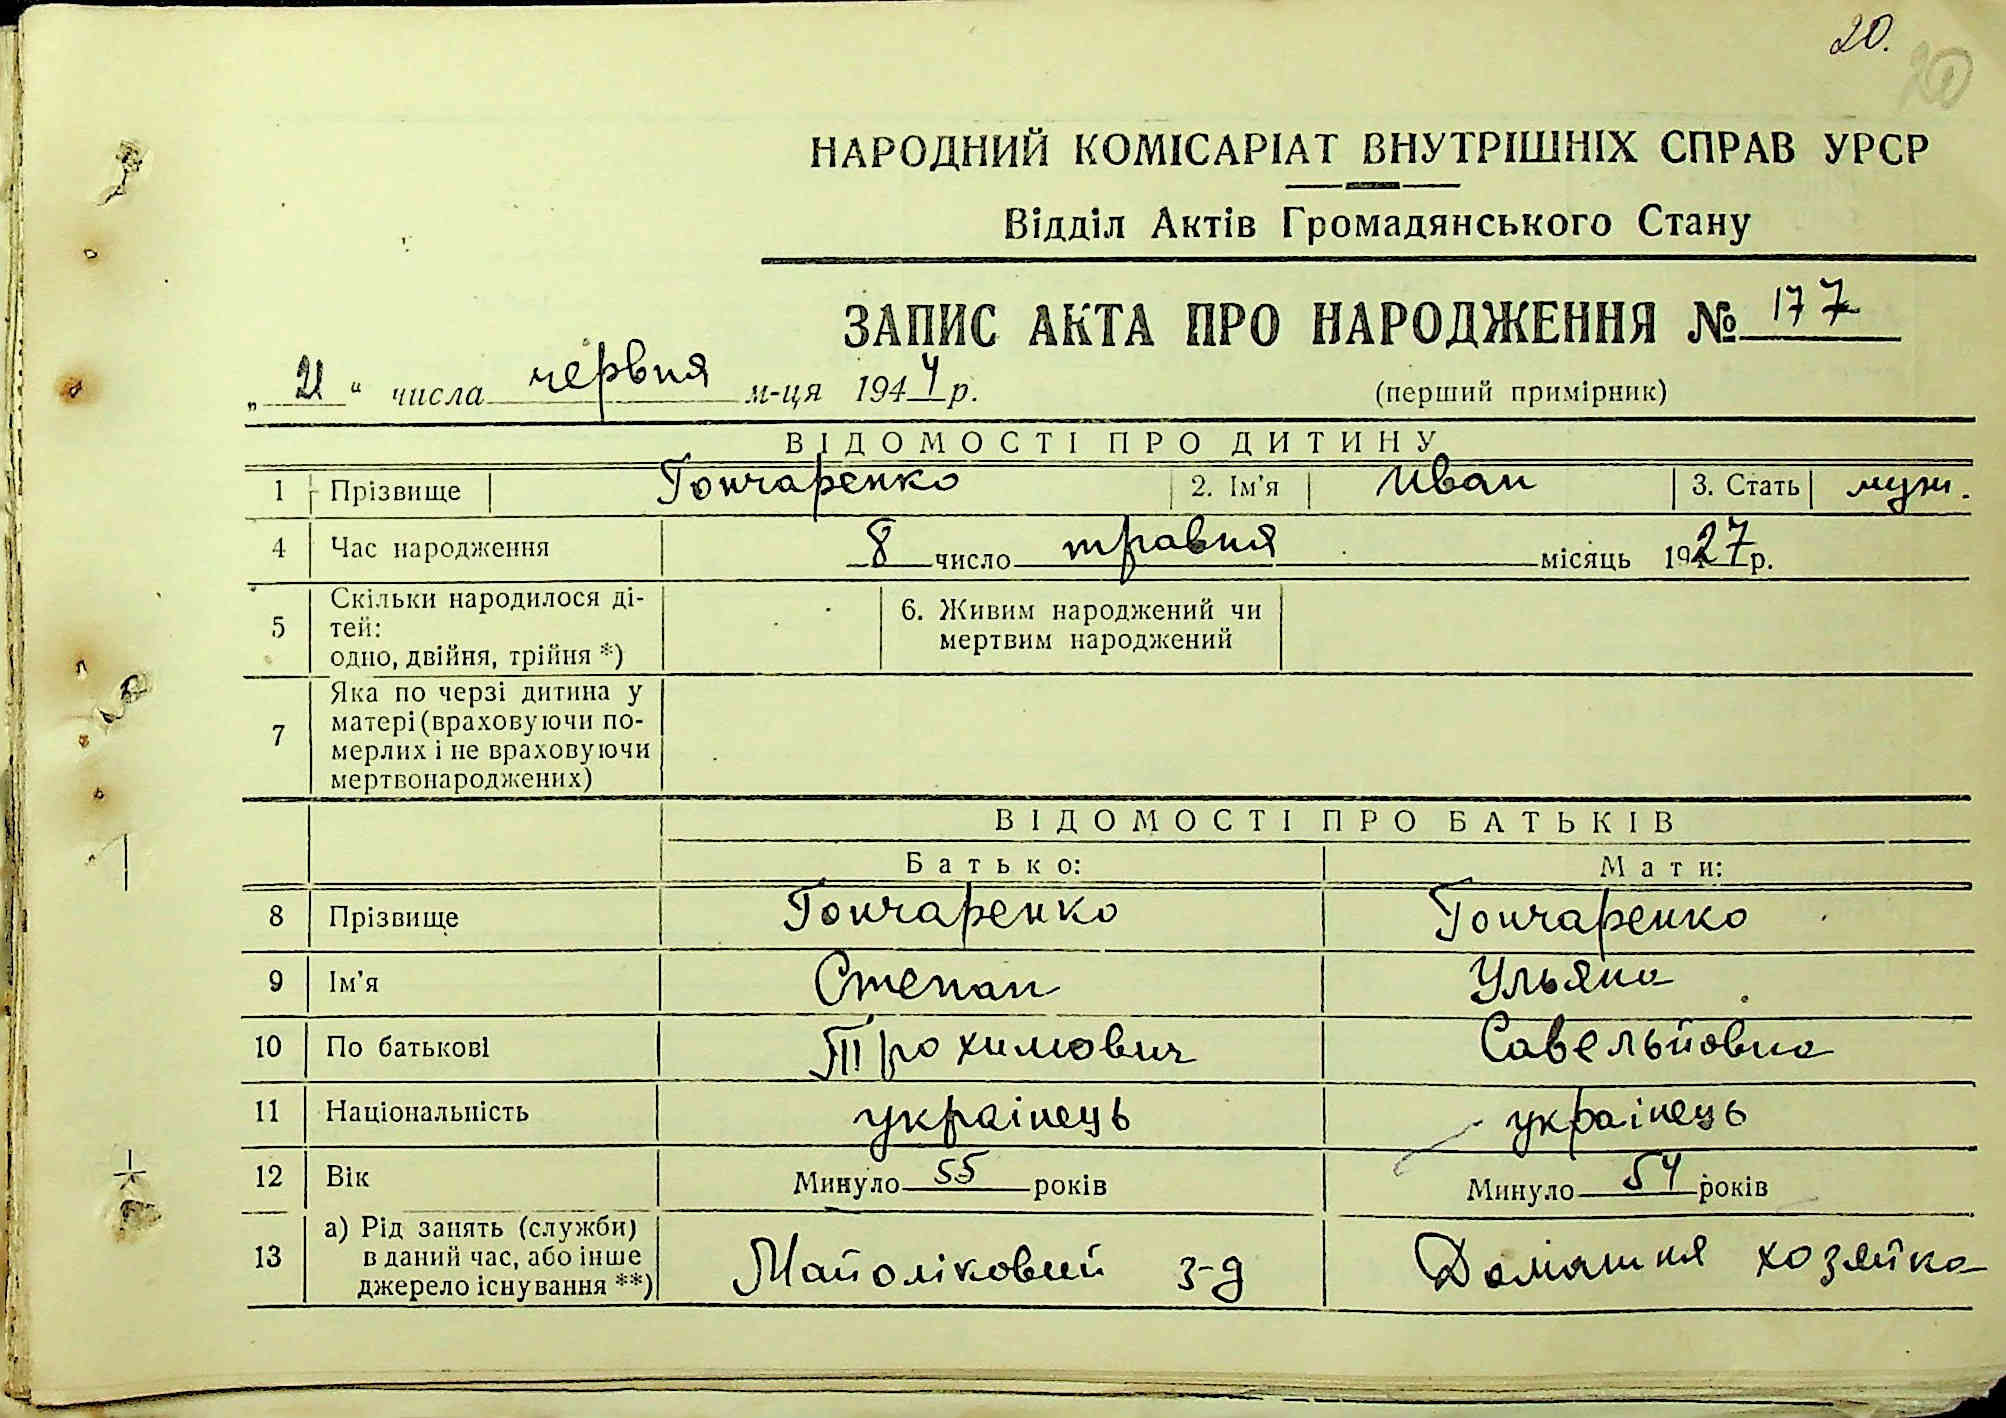 20.
20
НАРОДНИЙ КОМІСАРІАТ ВНУТРІШНІХ СПРАВ УРСР
Відділ Актів Громадянського Стану
ЗАПИС АКТА ПРО НАРОДЖЕННЯ № 177
„21“ числа червня м-ця 1944 р.
(перший примірник)
ВІДОМОСТІ ПРО ДИТИНУ
1 Прізвище Гончаренко 2. Ім'я Иван 3. Стать муж.
4 Час народження 8 число травня місяць 1927 р.
5 Скільки народилося ді-
тей:
одно, двійня, трійня *)
6. Живим народжений чи
мертвим народжений
7 Яка по черзі дитина у
матері (враховуючи по-
мерлих і не враховуючи
мертвонароджених)
ВІДОМОСТІ ПРО БАТЬКІВ
Батько: Мати:
8 Прізвище Гончаренко Гончаренко
9 Ім'я Степан Ульяна
10 По батькові Трохимович Савельйовна
11 Національність українець українець
12 Вік Минуло 55 років Минуло 54 років
13 а) Рід занять (служби)
в даний час, або інше
джерело існування **)
Майоліковий з-д Домашня хозяйка